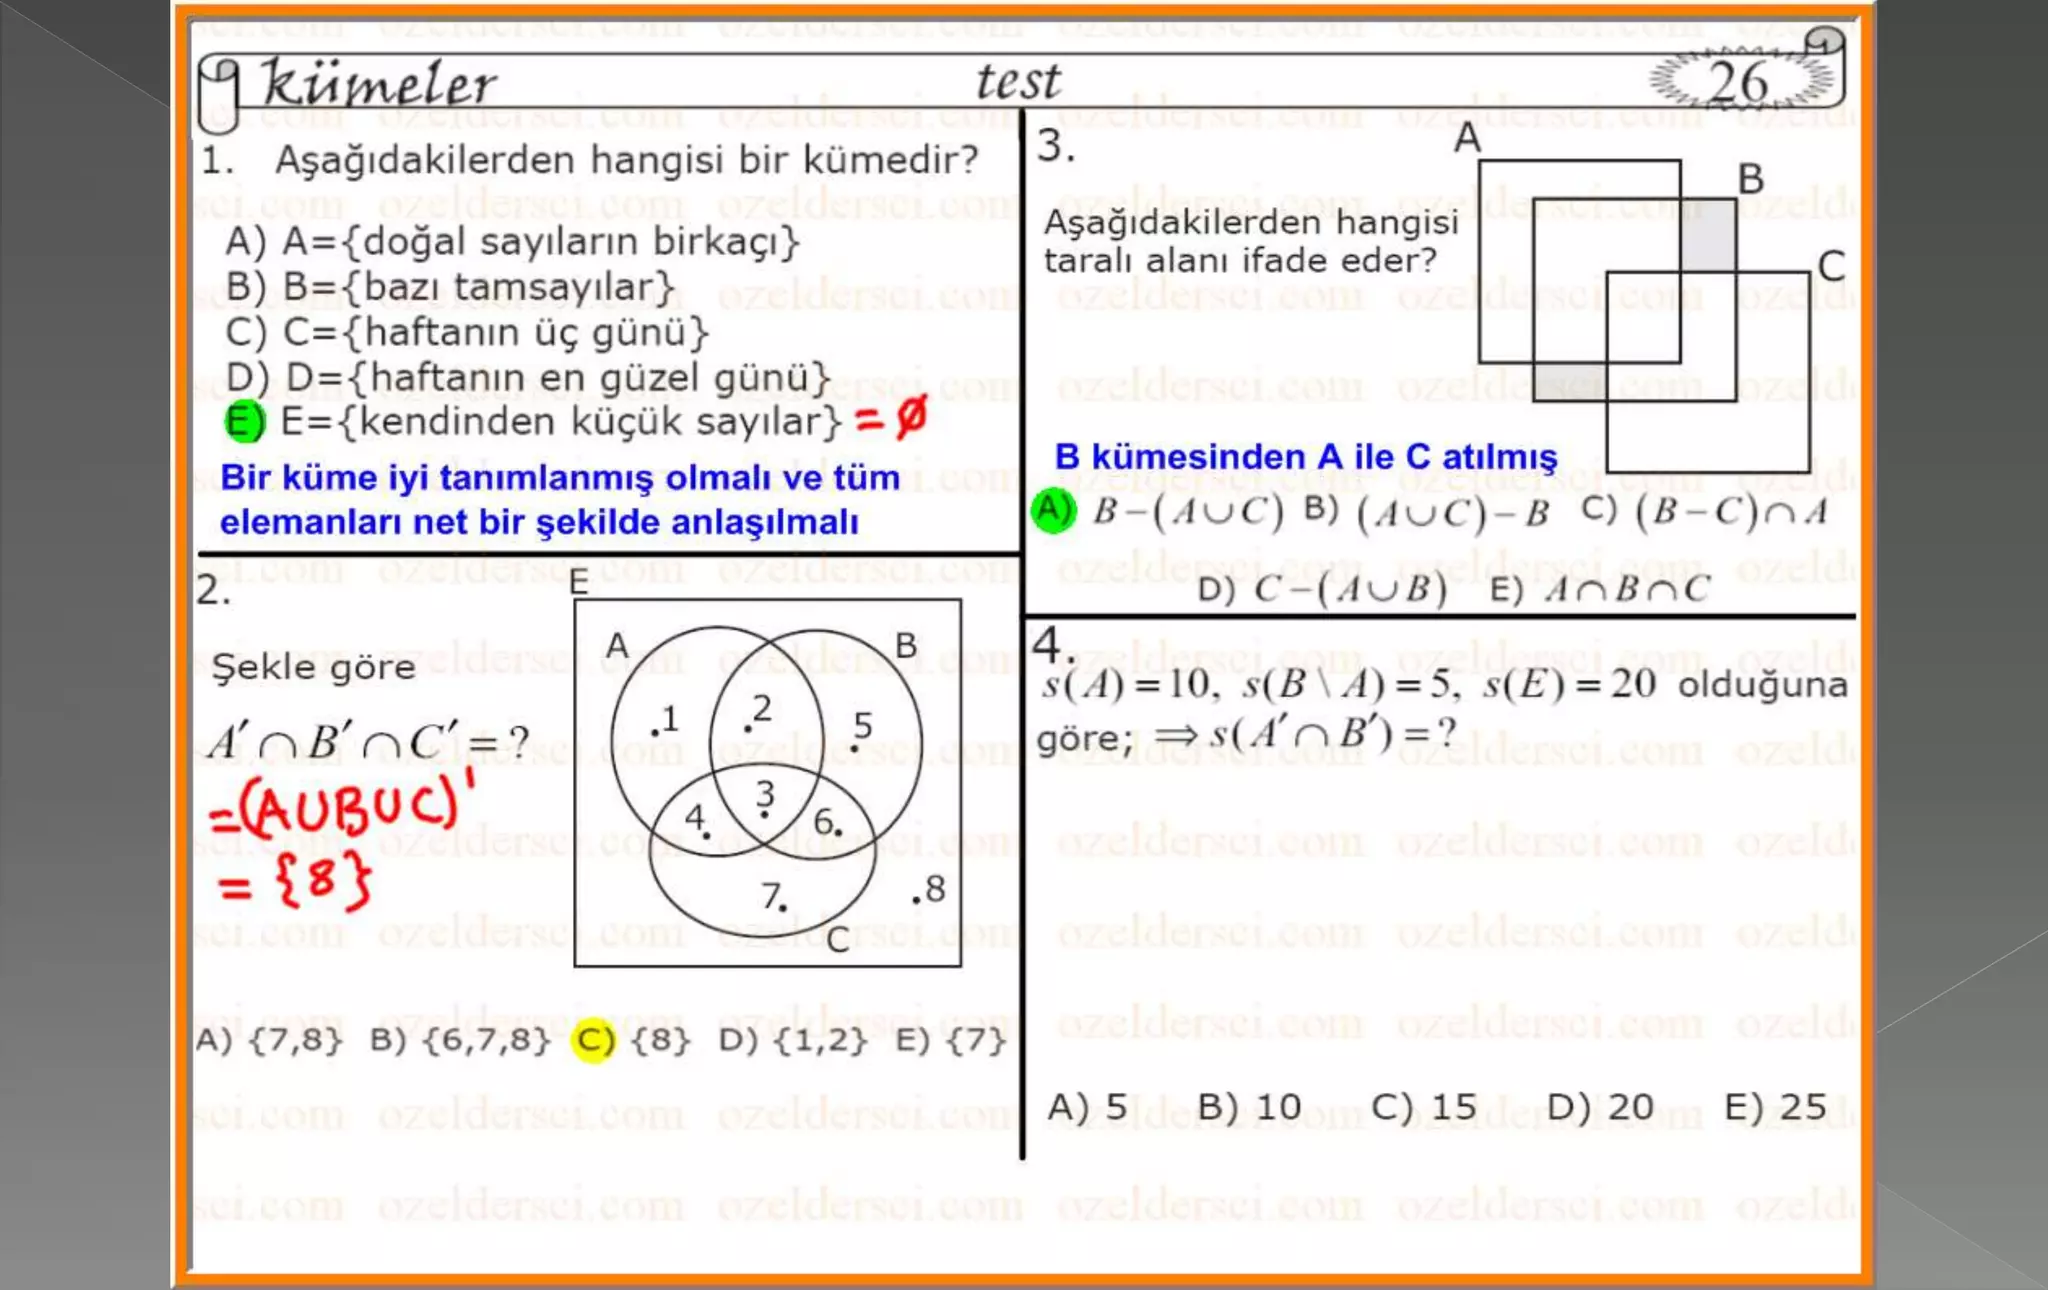 kümeler test 26
1. Aşağıdakilerden hangisi bir kümedir?
A) A={doğal sayıların birkaçı}
B) B={bazı tamsayılar}
C) C={haftanın üç günü}
D) D={haftanın en güzel günü}
E) E={kendinden küçük sayılar} = ∅
Bir küme iyi tanımlanmış olmalı ve tüm
elemanları net bir şekilde anlaşılmalı
2.
Şekle göre
A′∩B′∩C′=?
=(AUBUC)'
= {8}
E
A B
.1 2 5
4 3 6
7 .8
C
A) {7,8} B) {6,7,8} C) {8} D) {1,2} E) {7}
3.
Aşağıdakilerden hangisi
taralı alanı ifade eder?
A
B
C
B kümesinden A ile C atılmış
A) B−(A∪C) B) (A∪C)−B C) (B−C)∩A
D) C−(A∪B) E) A∩B∩C
4.
s(A)=10, s(B\A)=5, s(E)=20 olduğuna
göre; ⇒s(A′∩B′)=?
A) 5 B) 10 C) 15 D) 20 E) 25
ozeldersci.com